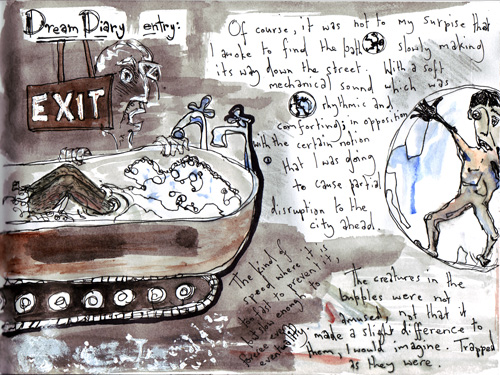 Dream Diary entry:
EXIT
Of course, it was not to my surpise that
I awoke to find the bath slowly making
its way down the street. With a soft
mechanical sound which was
rhythmic and
comforting; in opposition
with the certain notion
that I was going
to cause partial
disruption to the
city ahead.
The kind of
speed where it is
too fast to prevent it,
but slow enough to
foresee
eventuality
The creatures in the
bubbles were not
amused, not that it
made a slight difference to
them, I would imagine. Trapped
as they were.